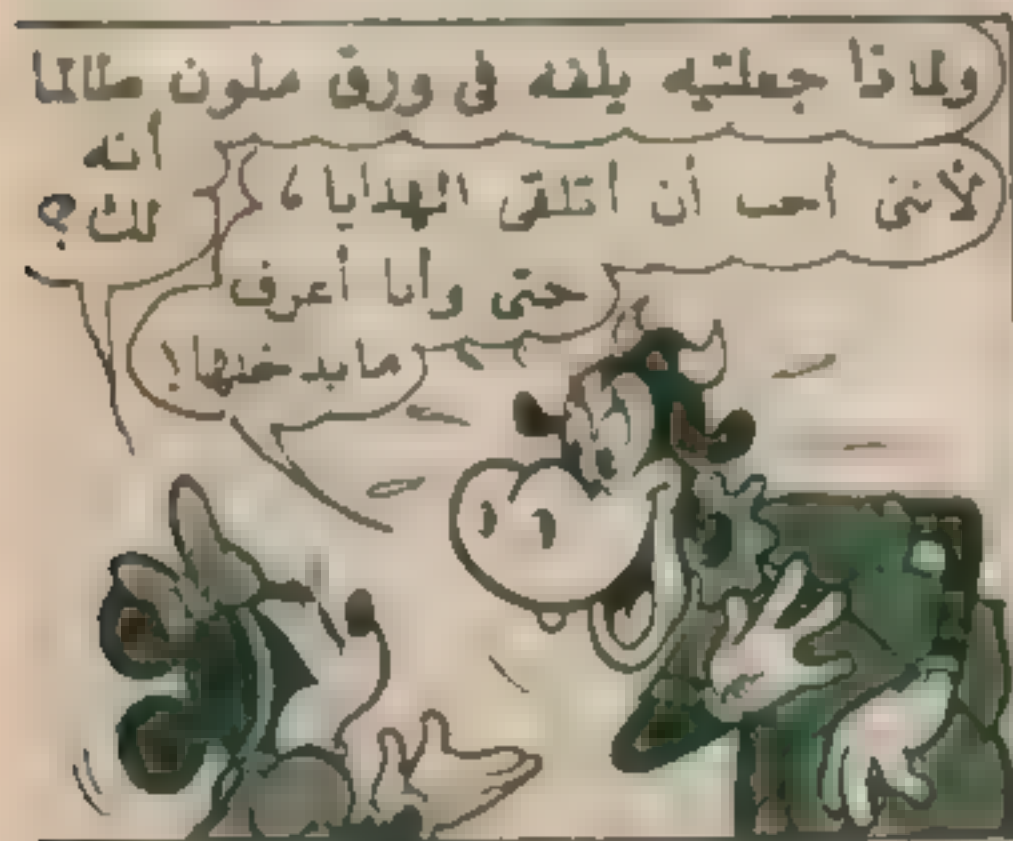 ولماذا جعلتيه يلفه فى ورق ملون طالما
أنه
لك؟
لأننى أحب أن أتلقى الهدايا،
حتى وأنا أعرف
ما بداخلها!